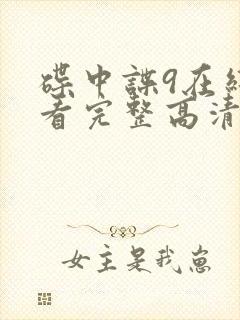 碟中諜9在線
看完整高清
女主是我崽